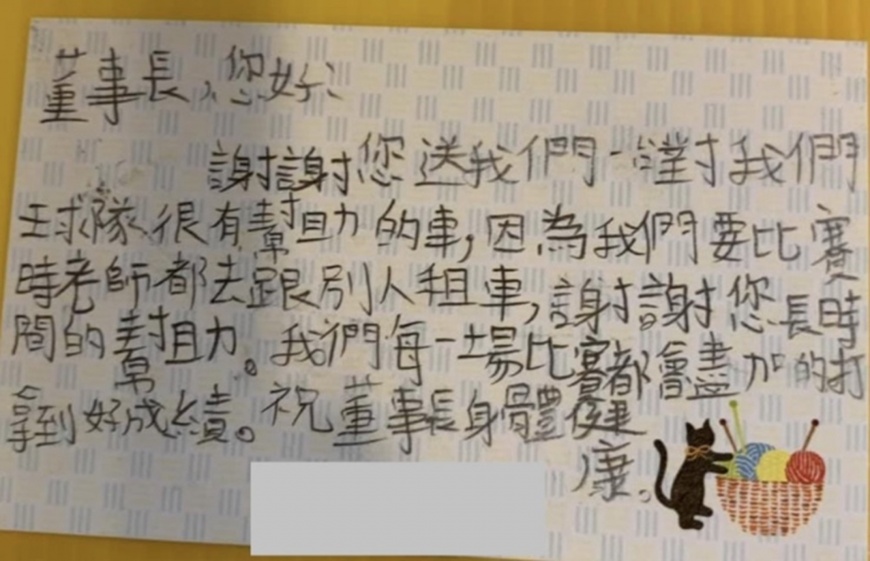 董事長,您好:
謝謝您送我們一對我們
球隊很有幫助的車,因為我們要比賽
時老師都去跟別人租車,謝謝您長時
間的幫助。我們每一場比賽都會盡力的打
拿到好成績。祝董事長身體健
康。